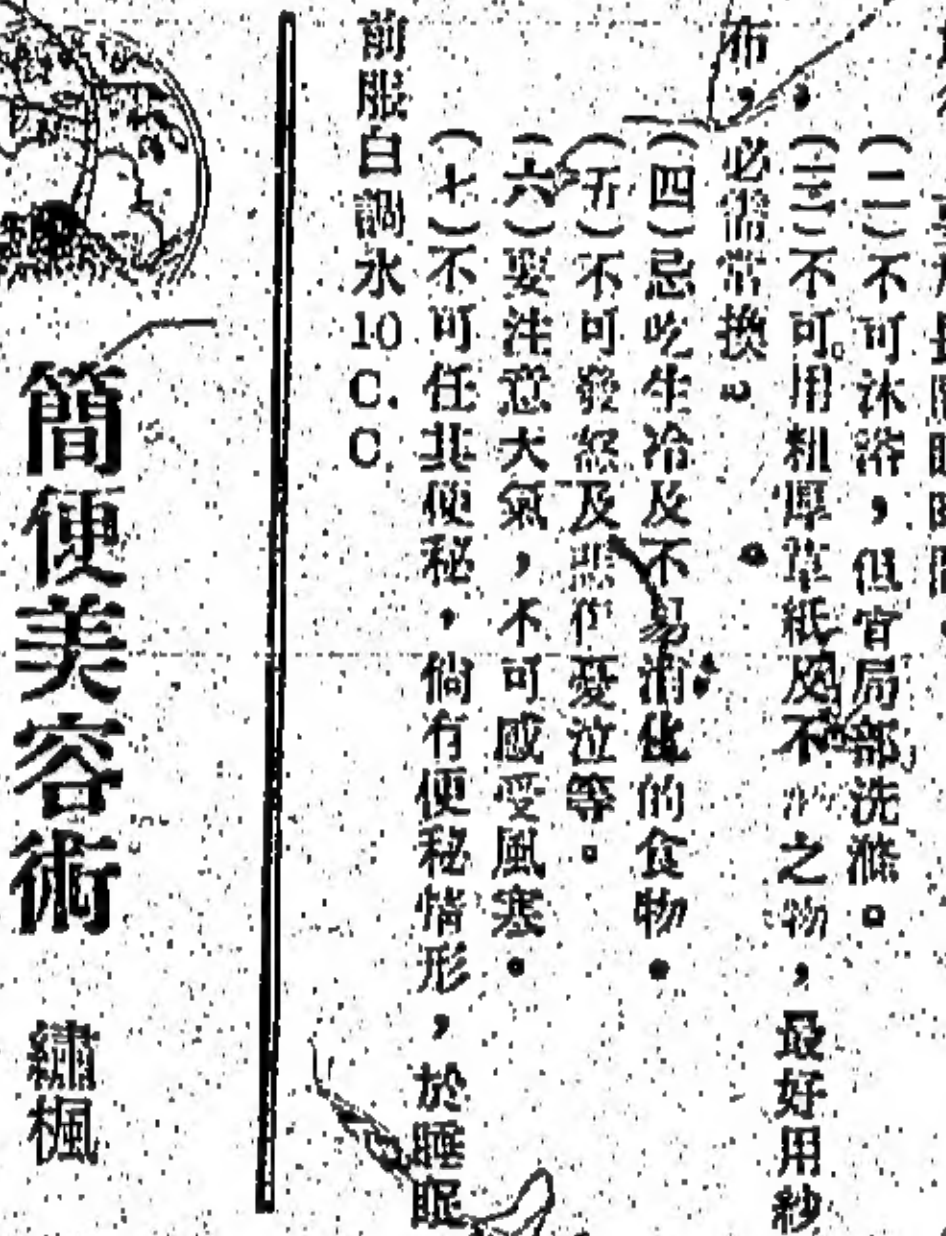 (二)不可沐浴，但官局部洗滌。
(三)不可用粗厚草紙及不之物，最好用紗
布，必需常換。
(四)忌吃生冷及不易消化的食物。
(五)不可發怒及悲愛泣等。
(六)要注意大氣，不可感受風寒。
(七)不可任其便秘，倘有便秘情形，於睡眠
前服白調水10C.C.
簡便美容術
繡楓